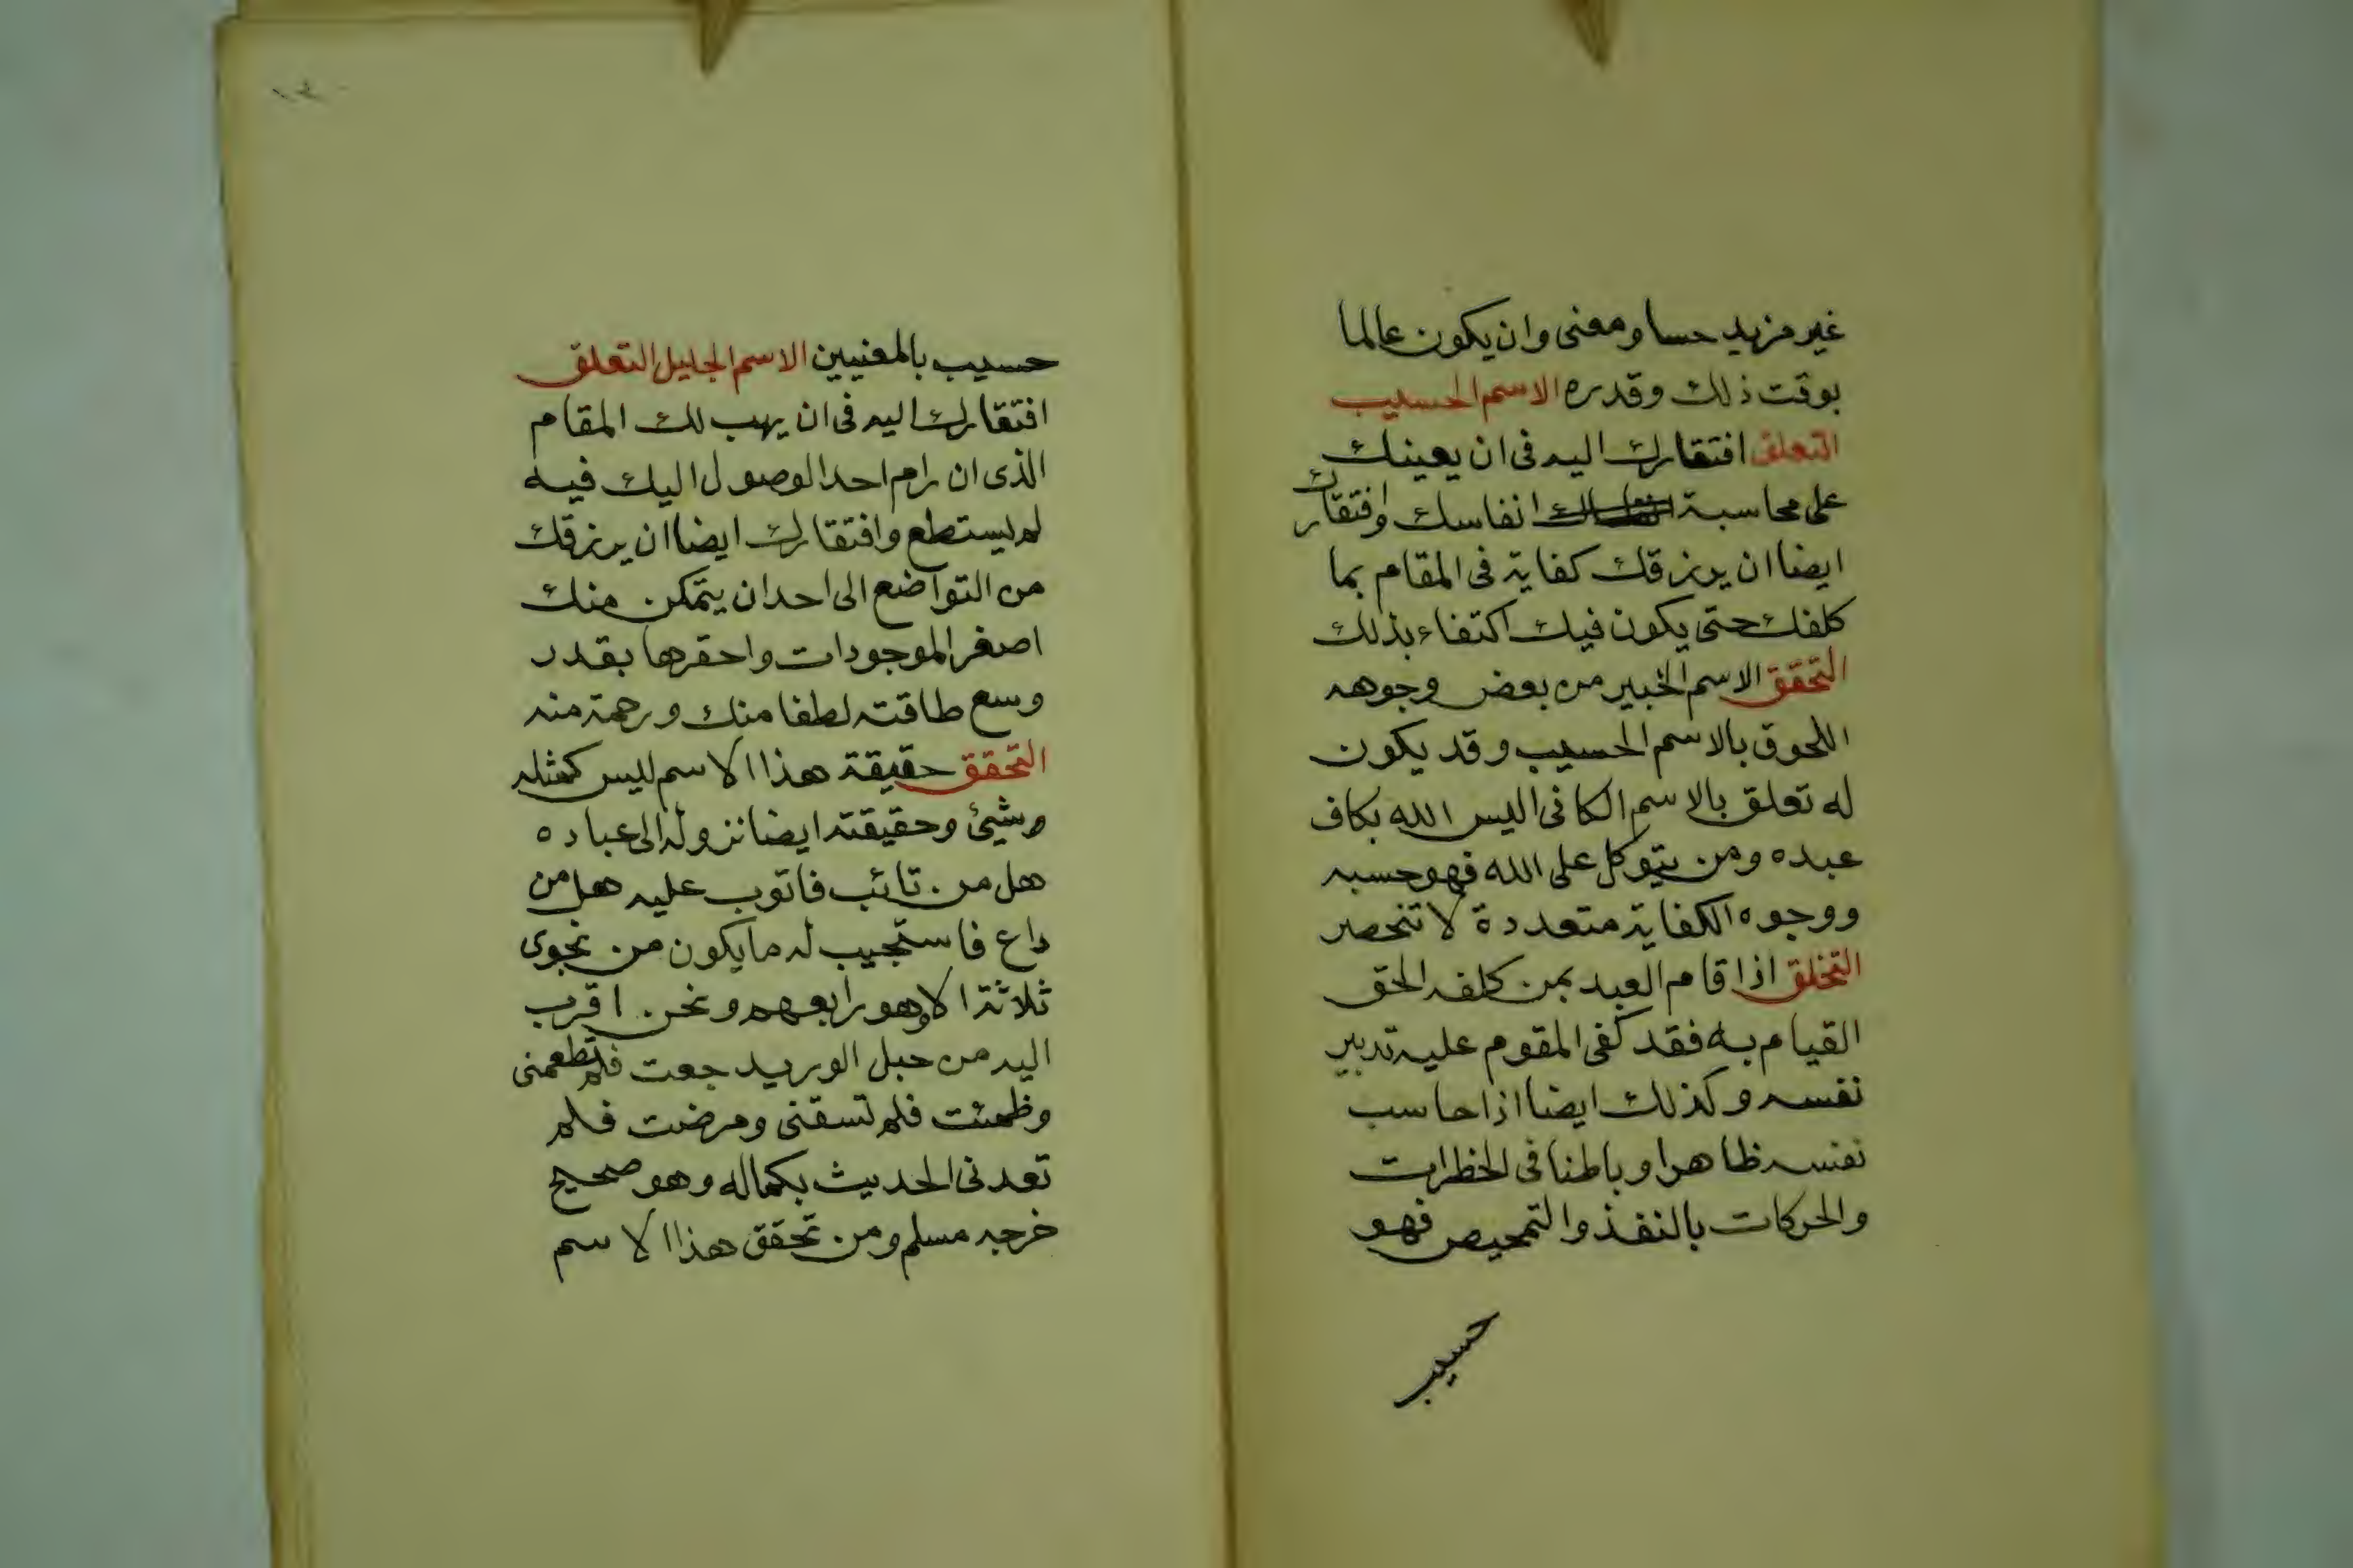 غير مزيد حسا ومعنى وان يكون عالما
بوقت ذلك وقدره الاسم الحسيب
التعلق افتقارك اليه فى ان يعينك
على محاسبة انفاسك وافتقارك
ايضا ان يرزقك كفاية فى المقام بما
كلفك حتى يكون فيك اكتفاء بذلك
التحقق الاسم الخبير من بعض وجوهه
اللحوق بالاسم الحسيب وقد يكون
له تعلق بالاسم الكافى اليس الله بكاف
عبده ومن يتوكل على الله فهو حسبه
ووجوه الكفاية متعددة لا تنحصر
التخلق اذا قام العبد بمن كلفه الحق
القيام به فقد كفى المقوم عليه تدبير
نفسه وكذلك ايضا اذا حاسب
نفسه ظاهرا وباطنا فى الخطرات
والحركات بالنفذ والتمحيص فهو
حسيب
حسيب بالمعنيين الاسم الجليل التعلق
افتقارك اليه فى ان يهب لك المقام
الذى ان رام احد الوصول اليك فيه
لم يستطع وافتقارك ايضا ان يرزقك
من التواضع الى احد ان يتمكن منك
اصغر الموجودات واحقرها بقدر
وسع طاقته لطفا منك ورحمة منه
التحقق حقيقة هذا الاسم ليس كمثله
شئ وحقيقته ايضا نزوله الى عباده
هل من تائب فاتوب عليه هل من
داع فاستجيب له ما يكون من نجوى
ثلاثة الا وهو رابعهم ونحن اقرب
اليه من حبل الوريد جعت فلم تطعمنى
وظمئت فلم تسقنى ومرضت فلم
تعدنى الحديث بكماله وهو صحيح
خرجه مسلم ومن تحقق هذا الاسم